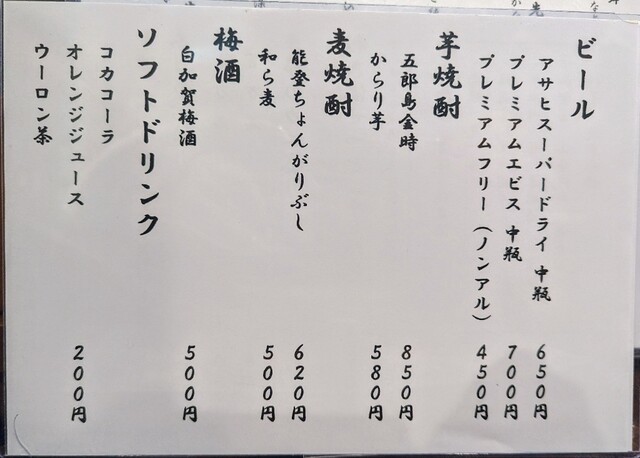 ビール
アサヒスーパードライ 中瓶 650円
プレミアムエビス 中瓶 700円
プレミアムフリー(ノンアル) 450円
芋焼酎
五郎島金時 850円
からり芋 580円
麦焼酎
能登ちょんがりぶし 620円
和ら麦 500円
梅酒
白加賀梅酒 500円
ソフトドリンク
コカコーラ
オレンジジュース 200円
ウーロン茶